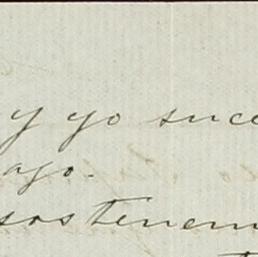 y yo suce
ago.
sostenem